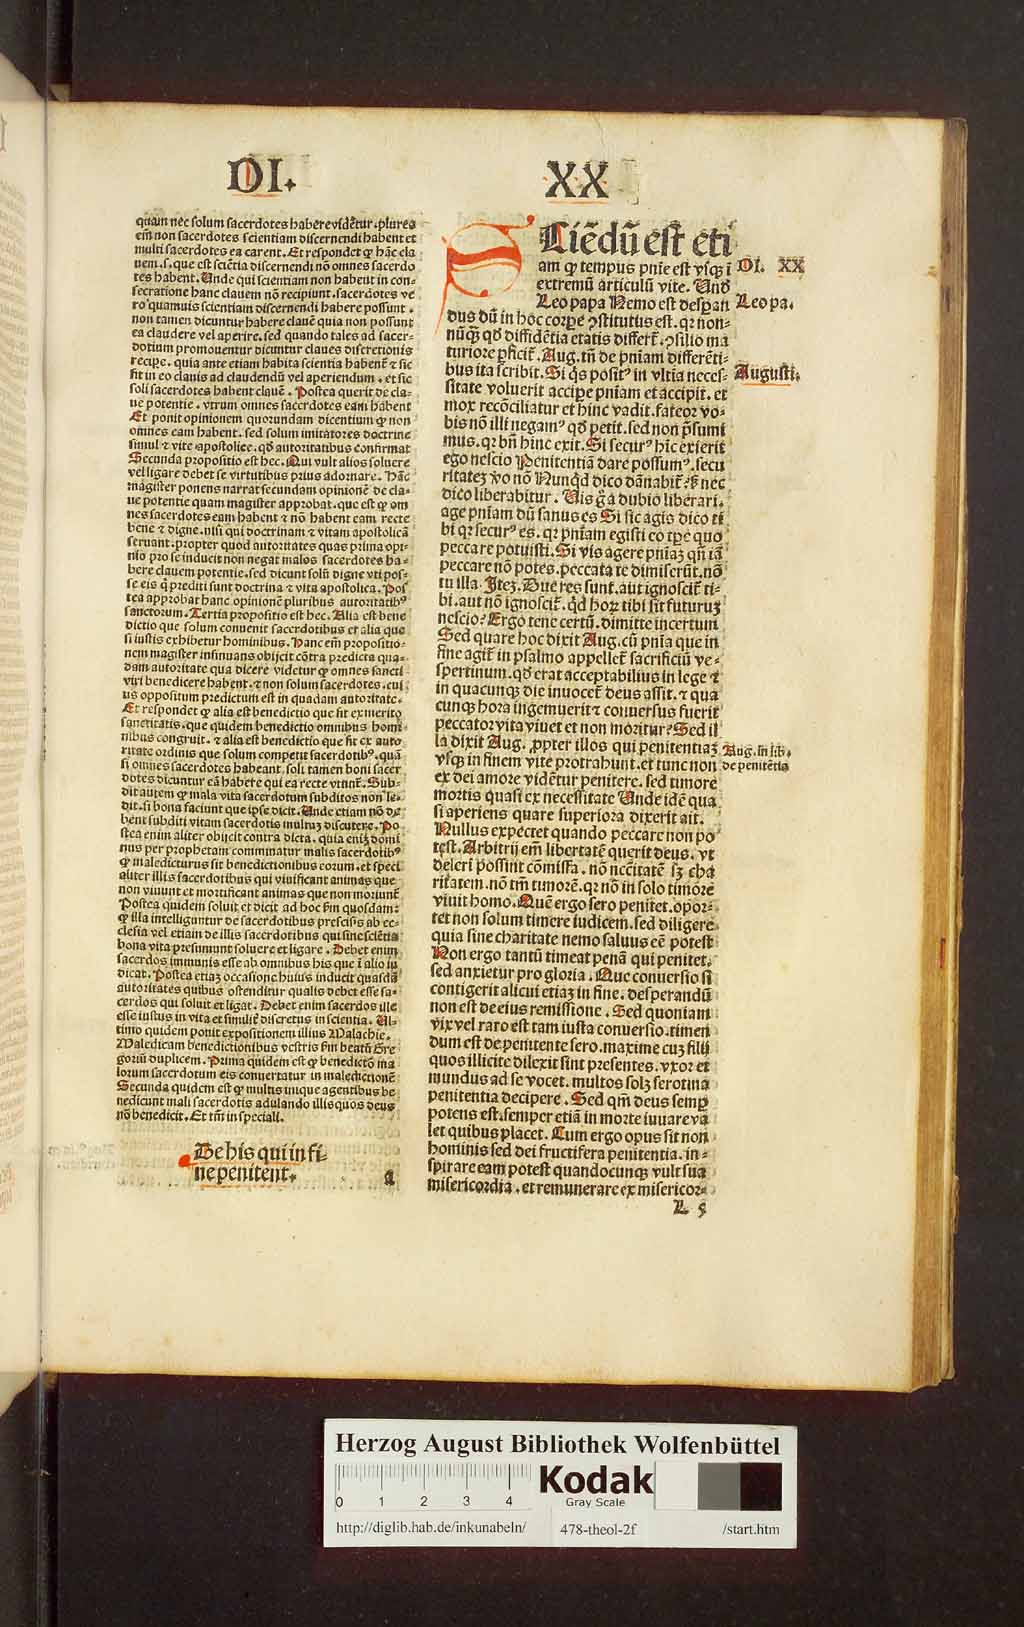 DI.
XX
quam nec solum sacerdotes habere vidẽtur. plures
em̃ non sacerdotes scientiam discernendi habent et
multi sacerdotes ea carent. Et respondet ꝙ hãc cla
uem. s. que est sciẽtia discernendi nõ omnes sacerdo
tes habent. Unde qui scientiam non habent in con-
secratione hanc clauem nõ recipiunt. sacerdotes ve
ro quamuis scientiam discernendi habere possunt.
non tamen dicuntur habere clauẽ quia non possunt
ea claudere vel aperire. sed quando tales ad sacer-
dotium promouentur dicuntur claues discretionis
recipe. quia ante etiam habita scientia habent̃ ⁊ sic
fit in eo clauis ad claudendũ vel aperiendum. et sic
soli sacerdotes habent clauẽ. Postea querit de cla-
ue potentie. vtrum omnes sacerdotes eam habent
Et ponit opinionem quorundam dicentium ꝙ non
omnes eam habent. sed solum imitatores doctrine
simul ⁊ vite apostolice. qð autoritatibus confirmat
Secunda propositio est hec. Qui vult alios soluere
vel ligare debet se virtutibus prius adornare. Hãc
magister ponens narrat secundam opinionẽ de cla-
ue potentie quam magister approbat. que est ꝙ om
nes sacerdotes eam habent ⁊ nõ habent eam recte
bene ⁊ digne. nisi qui doctrinam ⁊ vitam apostolicã
seruant. propter quod autoritates quas prima opi-
nio pro se inducit non negat malos sacerdotes ha-
bere clauem potentie. sed dicunt solũ digne vti pos-
se eis q̃ prediti sunt doctrina ⁊ vita apostolica. Pos
tea approbat hanc opinionẽ pluribus autoritatibꝰ
sanctorum. Tertia propositio est hec. Alia est bene
dictio que solum conuenit sacerdotibus et alia que
si iustis exhibetur hominibus. Hanc em̃ propositio-
nem magister insinuans obijcit cõtra predicta qua-
dam autoritate qua dicere videtur ꝙ omnes sancti
viri benedicere habent. ⁊ non solum sacerdotes. cui
us oppositum predictum est in quadam autoritate.
Et respondet ꝙ alia est benedictio que fit ex merito
sanctitatis. que quidem benedictio omnibus homi
nibus congruit. ⁊ alia est benedictio que fit ex auto
ritate ordinis que solum competit sacerdotibꝰ. quã
si omnes sacerdotes habeant. soli tamen boni sacer
dotes dicuntur eã habere qui ea recte vtunt̃. Sub-
dit autem ꝙ mala vita sacerdotum subditos non le-
dit. si bona faciunt que ipse dicit. Unde etiam nõ de
bent subditi vitam sacerdotis multuꝫ discutere. Po
stea enim aliter obijcit contra dicta. quia eniꝫ domi
nus per prophetam comminatur malis sacerdotibꝰ
ꝙ maledicturus sit benedictionibus eorum. et speci
aliter illis sacerdotibus qui viuificant animas que
non viuunt et mortificant animas que non moriunt̃
Postea quidem soluit et dicit ad hoc ẜm quosdam
ꝙ illa intelliguntur de sacerdotibus prescisis ab ec-
clesia vel etiam de illis sacerdotibus qui sine sciẽtia
bona vita presumunt soluere et ligare. Debet enim
sacerdos immunis esse ab omnibus his que ĩ alio iu
dicat. Postea etiaꝫ occasione huius inducit quasdã
autoritates quibus ostenditur qualis debet esse sa-
cerdos qui soluit et ligat. Debet enim sacerdos ille
esse iustus in vita et similit̃ discretus in scientia. Ul-
timo quidem ponit expositionem illius Malachie.
Maledicam benedictionibus vestris ẜm beatũ Gre
goriũ duplicem. Prima quidem est ꝙ benedictio ma
lorum sacerdotum eis conuertatur in maledictionẽ
Secunda quidem est ꝙ multis inique agentibus be
nedicunt mali sacerdotis adulando illis quos deus
nõ benedicit. Et tm̃ in speciali.
De his qui in fi-
ne penitent.
a
SCiẽdũ est eti
am ꝙ tempus pnĩe est vsqꝫ ĩ
extremũ articulũ vite. Unð
Leo papa Nemo est despan
dus dũ in hoc corpe ↄstitutus est. qr non-
nũqꝫ qð diffidẽtia etatis differt̃. ↄsilio ma
turiore pficit̃. Aug. tñ de pniam differẽti-
bus ita scribit. Si q̃s positꝰ in vltĩa neces-
sitate voluerit accipe pniam et accipit. et
mox recõciliatur et hinc vadit. fateor vo-
bis nõ illi negamꝰ qð petit. sed non p̃sumi
mus. qr bñ hinc exit. Si securꝰ hĩc exierit
ego nescio Penitentiã dare possumꝰ. secu
ritateꝫ v̊o nõ Nunqð dico dãnabit̃? ẞ nec
dico liberabitur. Uis g̃ a dubio liberari.
age pniam dũ sanus es Si sic agis dico ti
bi qr securꝰ es. qr pniam egisti eo tp̃e quo
peccare potuisti. Si vis agere pniaꝫ qñ iã
peccare nõ potes. peccata te dimiserũt. nõ
tu illa. Iteꝫ. Due res sunt. aut ignoscit̃ ti-
bi. aut nõ ignoscit̃. qð horꝫ tibi sit futuruꝫ
nescio? Ergo tene certũ. dimitte incertum
Sed quare hoc dixit Aug. cũ pnĩa que in
fine agit̃ in psalmo appellet̃ sacrificiũ ve-
spertinum. qð erat acceptabilius in lege ⁊
in quacunqꝫ die inuocet̃ deus assit. ⁊ qua
cunqꝫ hora ingemuerit ⁊ conuersus fuerit
peccator vita viuet et non moritur? Sed il
la dixit Aug. ꝓpter illos qui penitentiaꝫ
vsqꝫ in finem vite protrahunt. et tunc non
ex dei amore vidẽtur penitere. sed timore
mortis quasi ex necessitate Unde idẽ qua
si aperiens quare superiora dixerit ait.
Nullus expectet quando peccare non po
test. Arbitrij em̃ libertatẽ querit deus. vt
deleri possint cõmissa. nõ necẽitatẽ sꝫ cha
ritatem. nõ tm̃ timorẽ. qr nõ in solo timore
viuit homo. Quẽ ergo sero penitet. opor-
tet non solum timere iudicem. sed diligere
quia sine charitate nemo saluus eẽ potest
Non ergo tantũ timeat penã qui penitet.
sed anxietur pro gloria. Que conuersio si
contigerit alicui etiaꝫ in fine. desperandũ
non est de eius remissione. Sed quoniam
vix vel raro est tam iusta conuersio. timen
dum est de penitente sero. maxime cuꝫ filij
quos illicite dilexit sint presentes. vxor et
mundus ad se vocet. multos solꝫ serotina
penitentia decipere. Sed qm̃ deus semꝑ
potens est. semper etiã in morte iuuare va
let quibus placet. Cum ergo opus sit non
hominis sed dei fructifera penitentia. in-
spirare eam potest quandocunqꝫ vult sua
misericordia. et remunerare ex misericor-
L 5
DI. XX
Leo pa.
Augusti.
Aug. in lib.
de penitẽtia
Herzog August Bibliothek Wolfenbüttel
0 1 2 3 4
Kodak
Gray Scale
http://diglib.hab.de/inkunabeln/
478-theol-2f
/start.htm